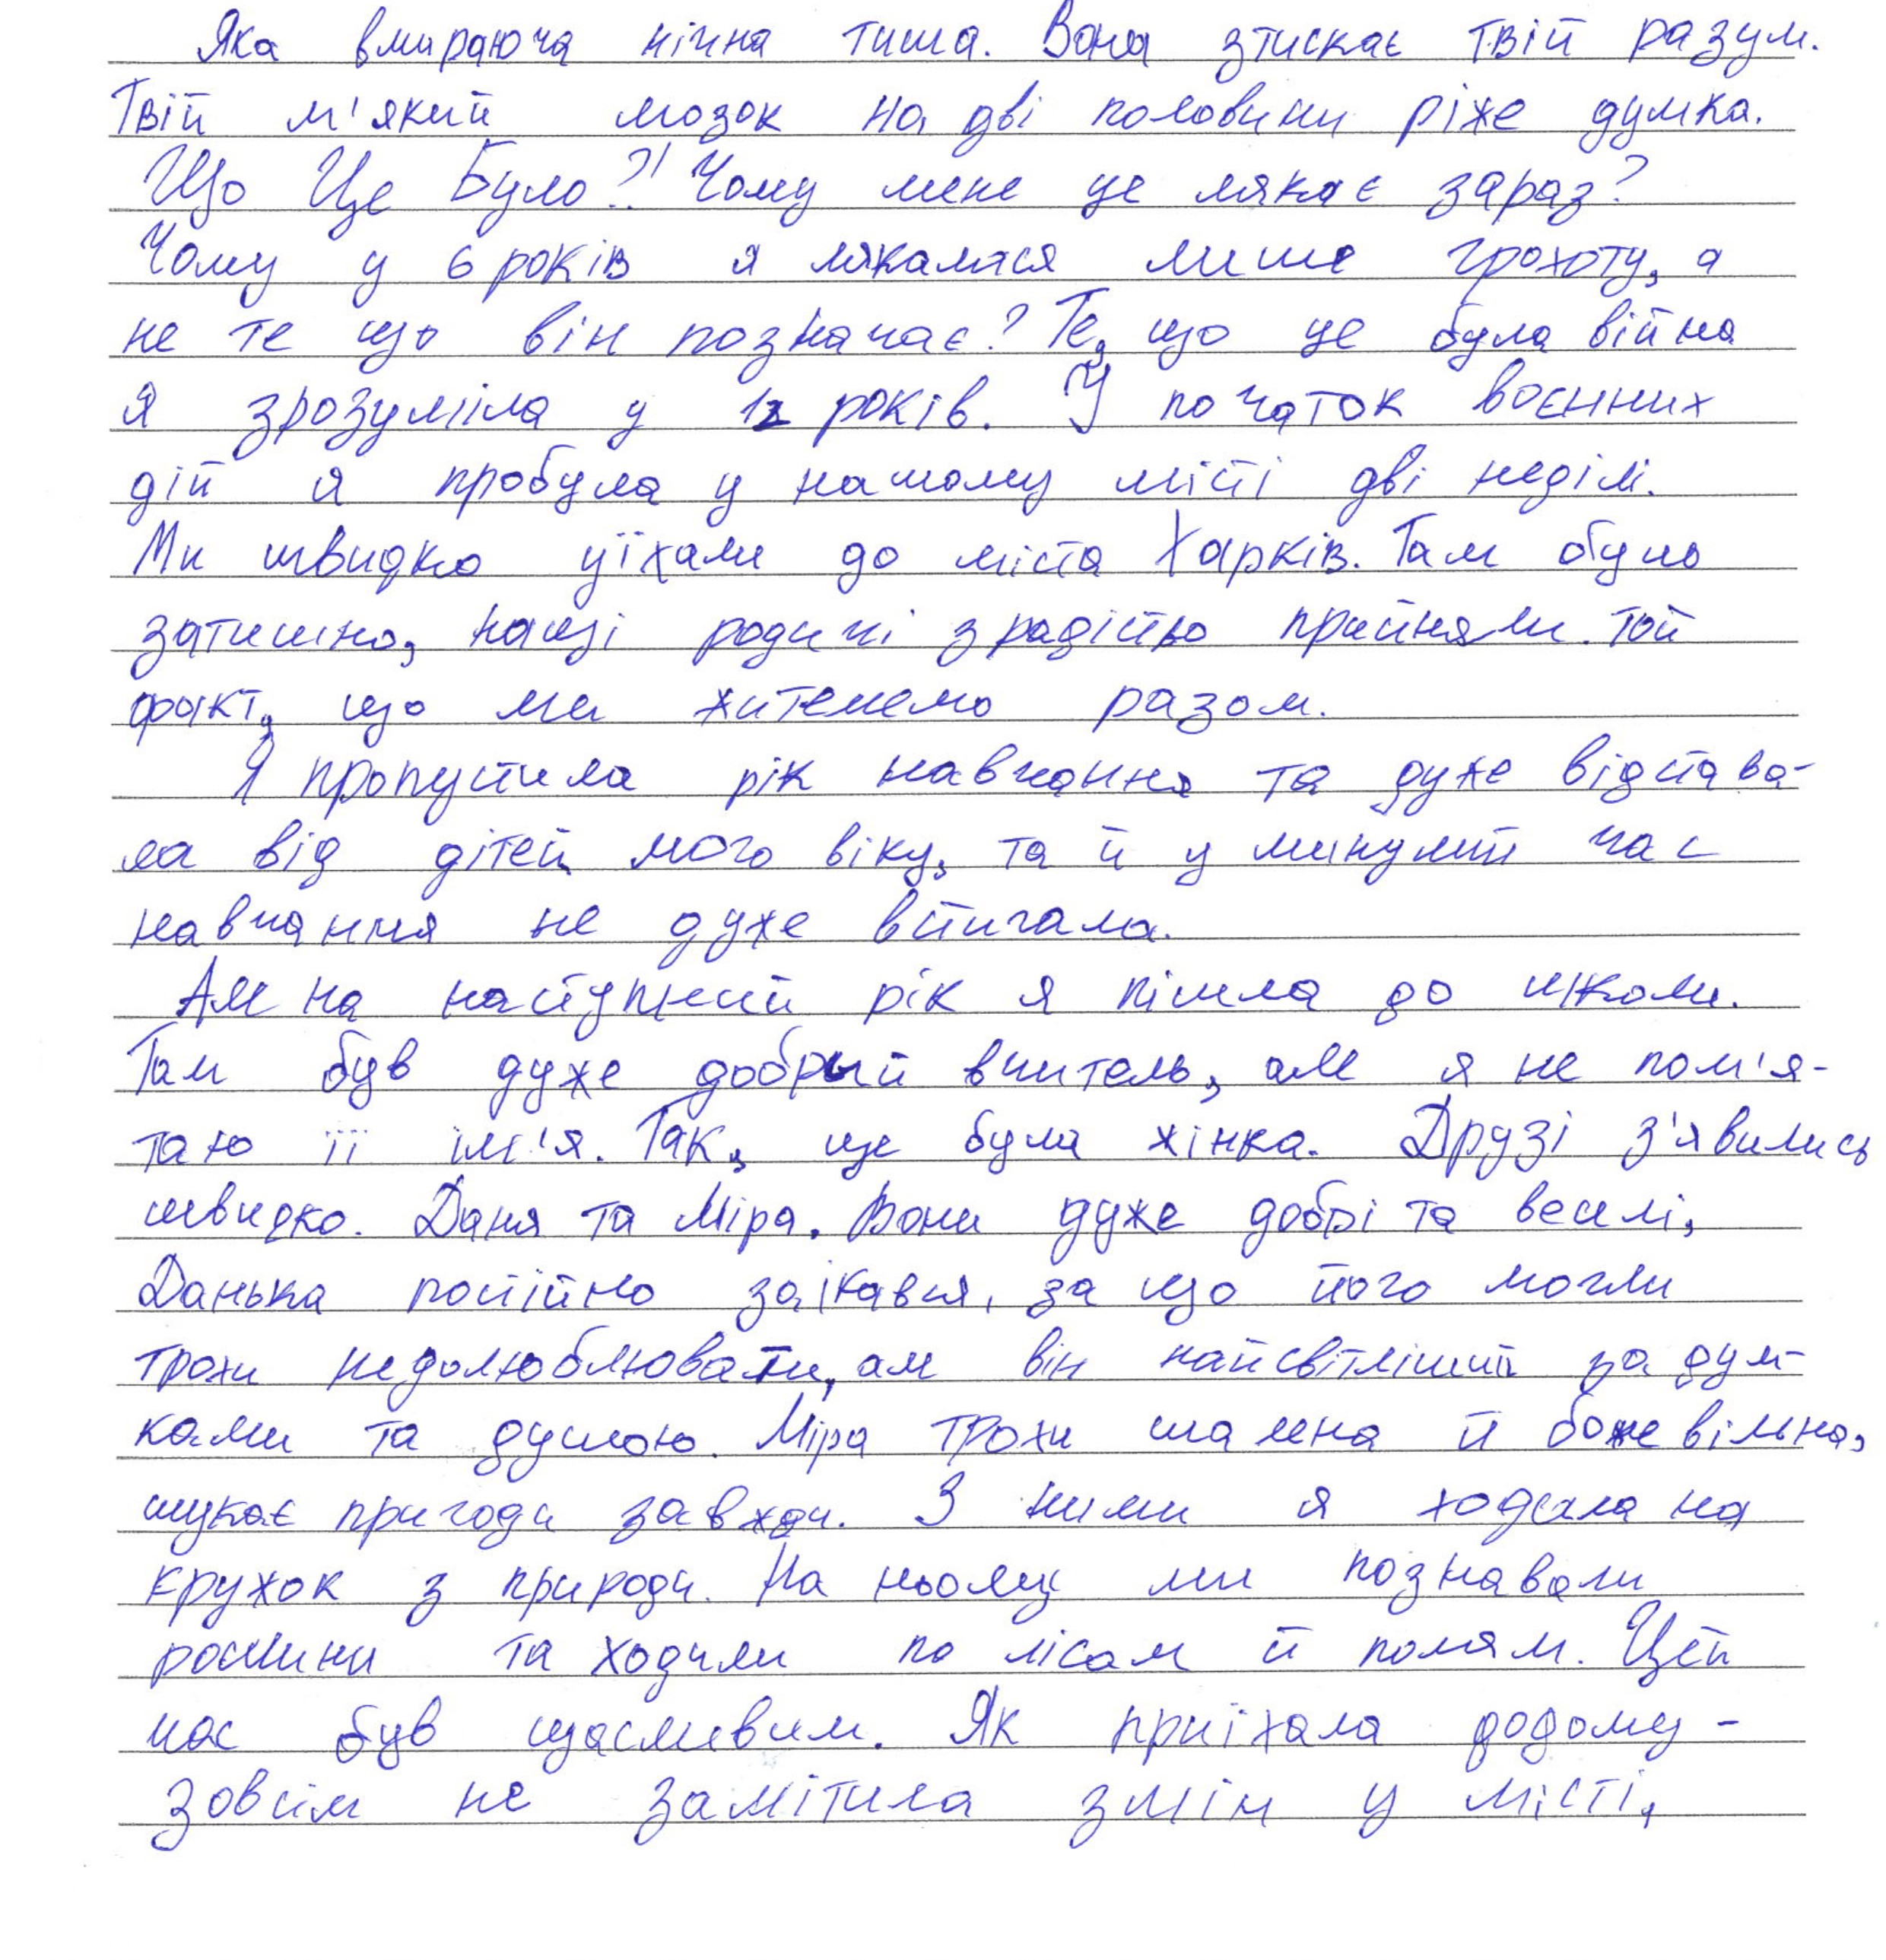 Яка вмираюча нічна тиша. Вона зтискає твій разум.
Твій м'який мозок на дві половини ріже думка.
Що Це Було?! Чому мене це лякає зараз?
Чому у 6 років я лякалася лише грохоту, а
не те що він позначає? Те, що це була війна
я зрозуміла у 12 років. У початок воєнних
дій я пробула у нашому місті дві неділі.
Ми швидко уїхали до міста Харків. Там було
затишно, наші родичі з радістю прийняли. той
факт, що ми житемемо разом.
Я пропустила рік навчання та дуже відстава-
ла від дітей мого віку, та й у минулий час
навчання не дуже встигала.
Але на наступний рік я пішла до школи.
Там був дуже добрый вчитель, але я не пом'я-
таю її ім'я. Так, це була жінка. Друзі з'явились
швидко. Даня та Міра. Вони дуже добрі та веселі,
Данька постійно заїкався, за що його могли
трохи недолюблювати, але він найсвітліший за дум-
ками та душою. Міра трохи шалена й божевільна,
шукає пригоди завжди. З ними я ходила на
кружок з природи. На ньому ми познавали
рослини та ходили по лісам й полям. Цей
час був щасливим. Як приїхала додому -
зовсім не замітила змін у місті,